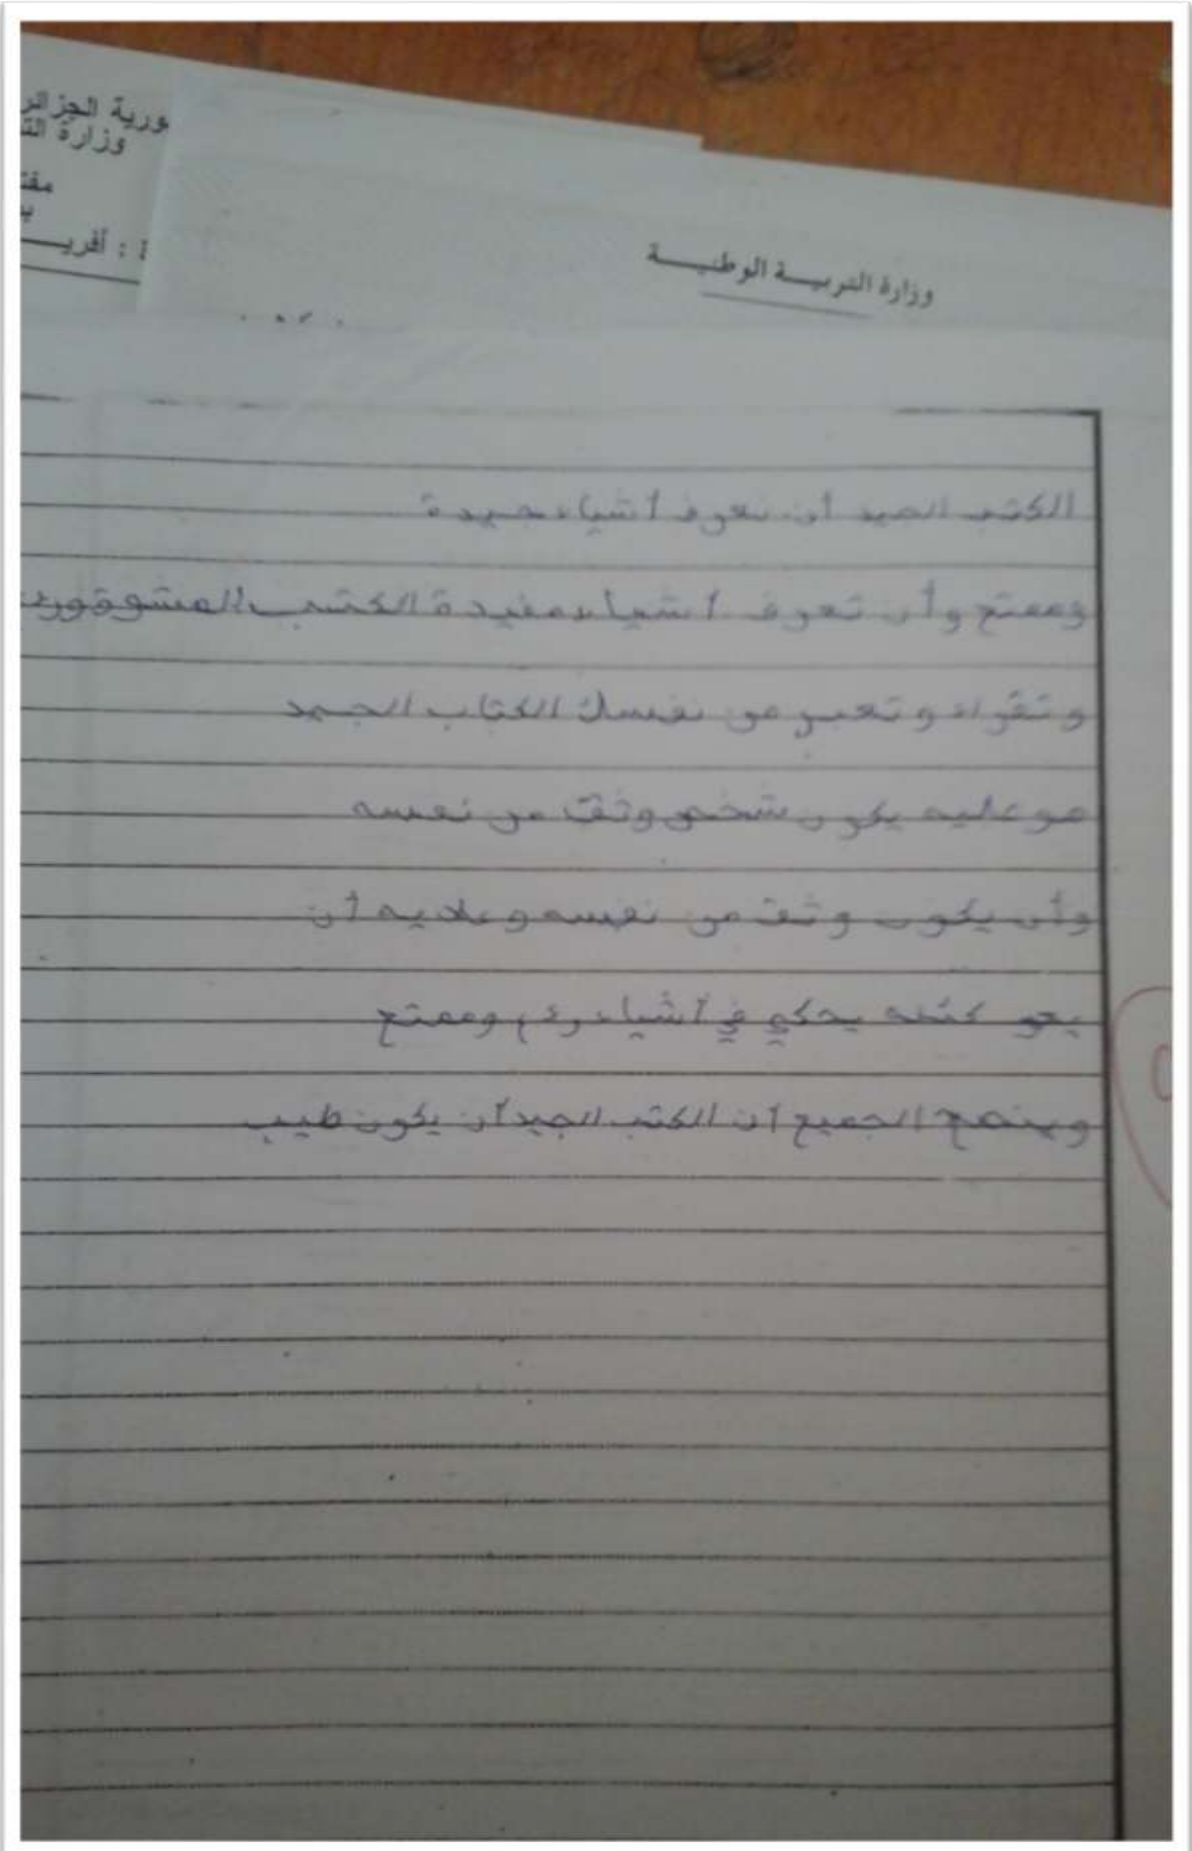 ورية الجزائر
وزارة الت
مفت
: أفريـ
وزارة التربيـــة الوطنيـــة
الكتب الجيد أن نعرف أشياء جيدة
وممتع وأن تعرف أشياء مفيدة الكتب المشوقون
و تقراء و تعبر عن نفسك الكتاب الجيد
هو عليه يكون شخص وثق من نفسه
وأن يكون وثق من نفسه و علايه أن
يحكي في أشياء وممتع
وينصح الجميع أن الكتب الجيد أن يكون طيب